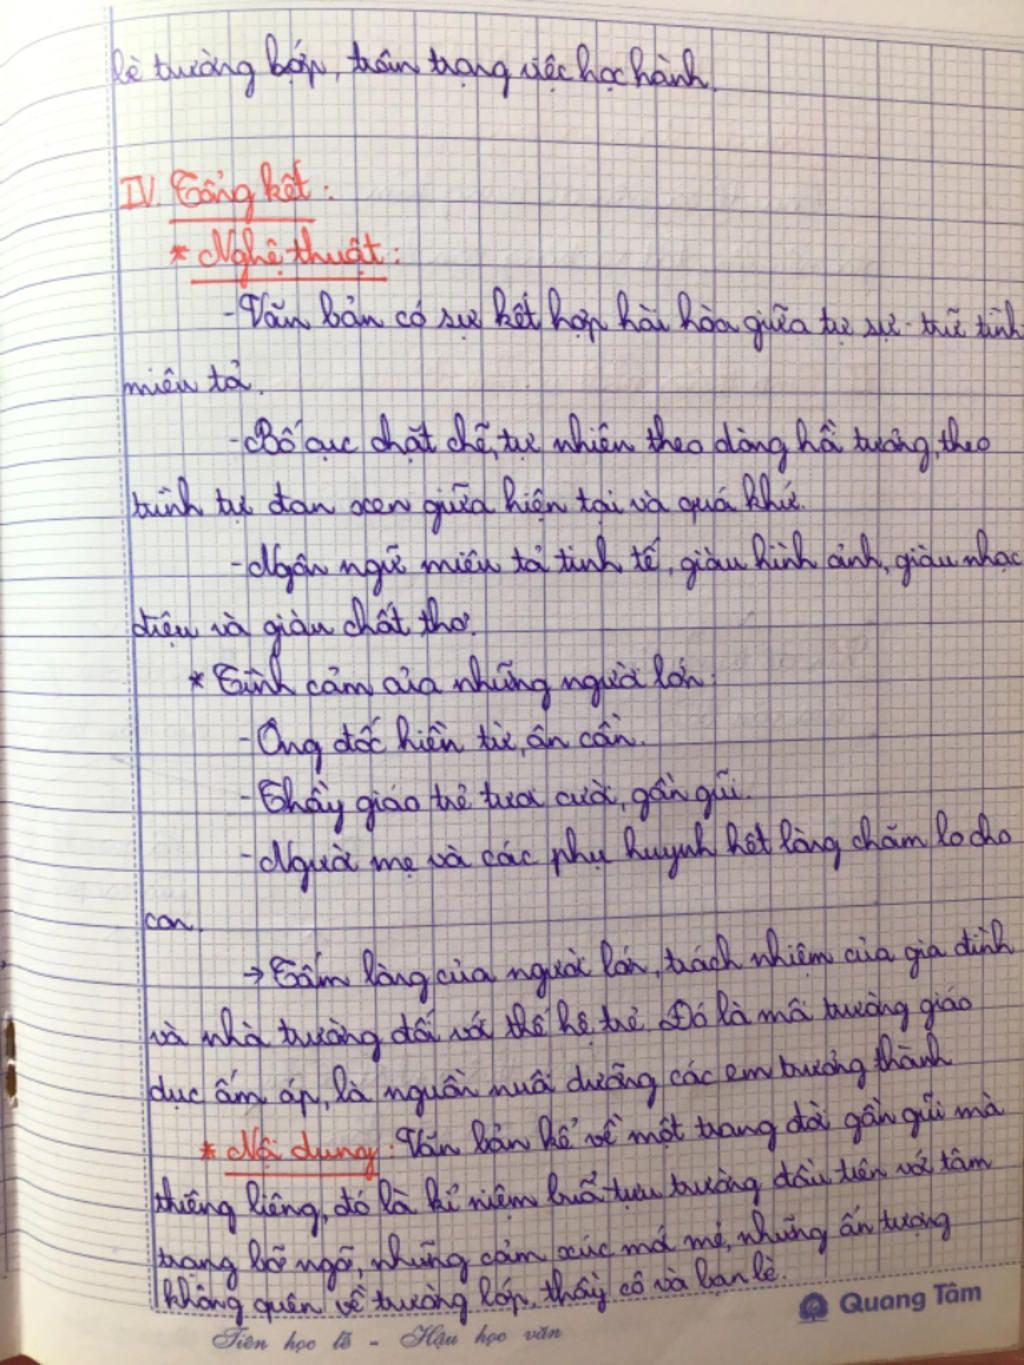 bè trường lớp, trân trọng việc học hành.
IV. Tổng kết:
* Nghệ thuật:
- Văn bản có sự kết hợp hài hòa giữa tự sự - trữ tình
miêu tả.
- Bố cục chặt chẽ, tự nhiên theo dòng hồi tưởng, theo
trình tự đan xen giữa hiện tại và quá khứ.
- Ngôn ngữ miêu tả tinh tế, giàu hình ảnh, giàu nhạc
điệu và giàu chất thơ.
* Tình cảm của những người lớn:
- Ông đốc hiền từ, ân cần.
- Thầy giáo trẻ tươi cười, gần gũi.
- Người mẹ và các phụ huynh hết lòng chăm lo cho
con.
→ Tấm lòng của người lớn, trách nhiệm của gia đình
và nhà trường đối với thế hệ trẻ. Đó là môi trường giáo
dục ấm áp, là nguồn nuôi dưỡng các em trưởng thành
* Nội dung: Văn bản kể về một trang đời gần gũi mà
thiêng liêng, đó là kỉ niệm buổi tựu trường đầu tiên với tâm
trạng bỡ ngỡ, những cảm xúc mới mẻ, những ấn tượng
không quên về trường lớp, thầy cô và bạn bè.
Quang Tâm
Tiên học lễ - Hậu học văn